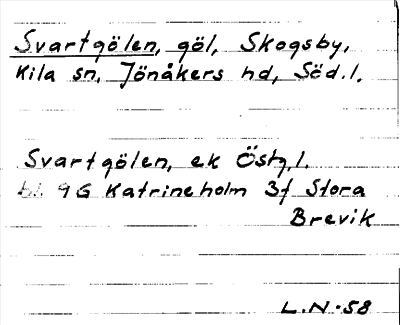 Svartgölen, göl, Skogsby,
Kila sn, Jönåkers hd, Söd.l.
Svartgölen, ek Östg.l.
bl. 9G Katrineholm 3f Stora
Brevik
L.N-58